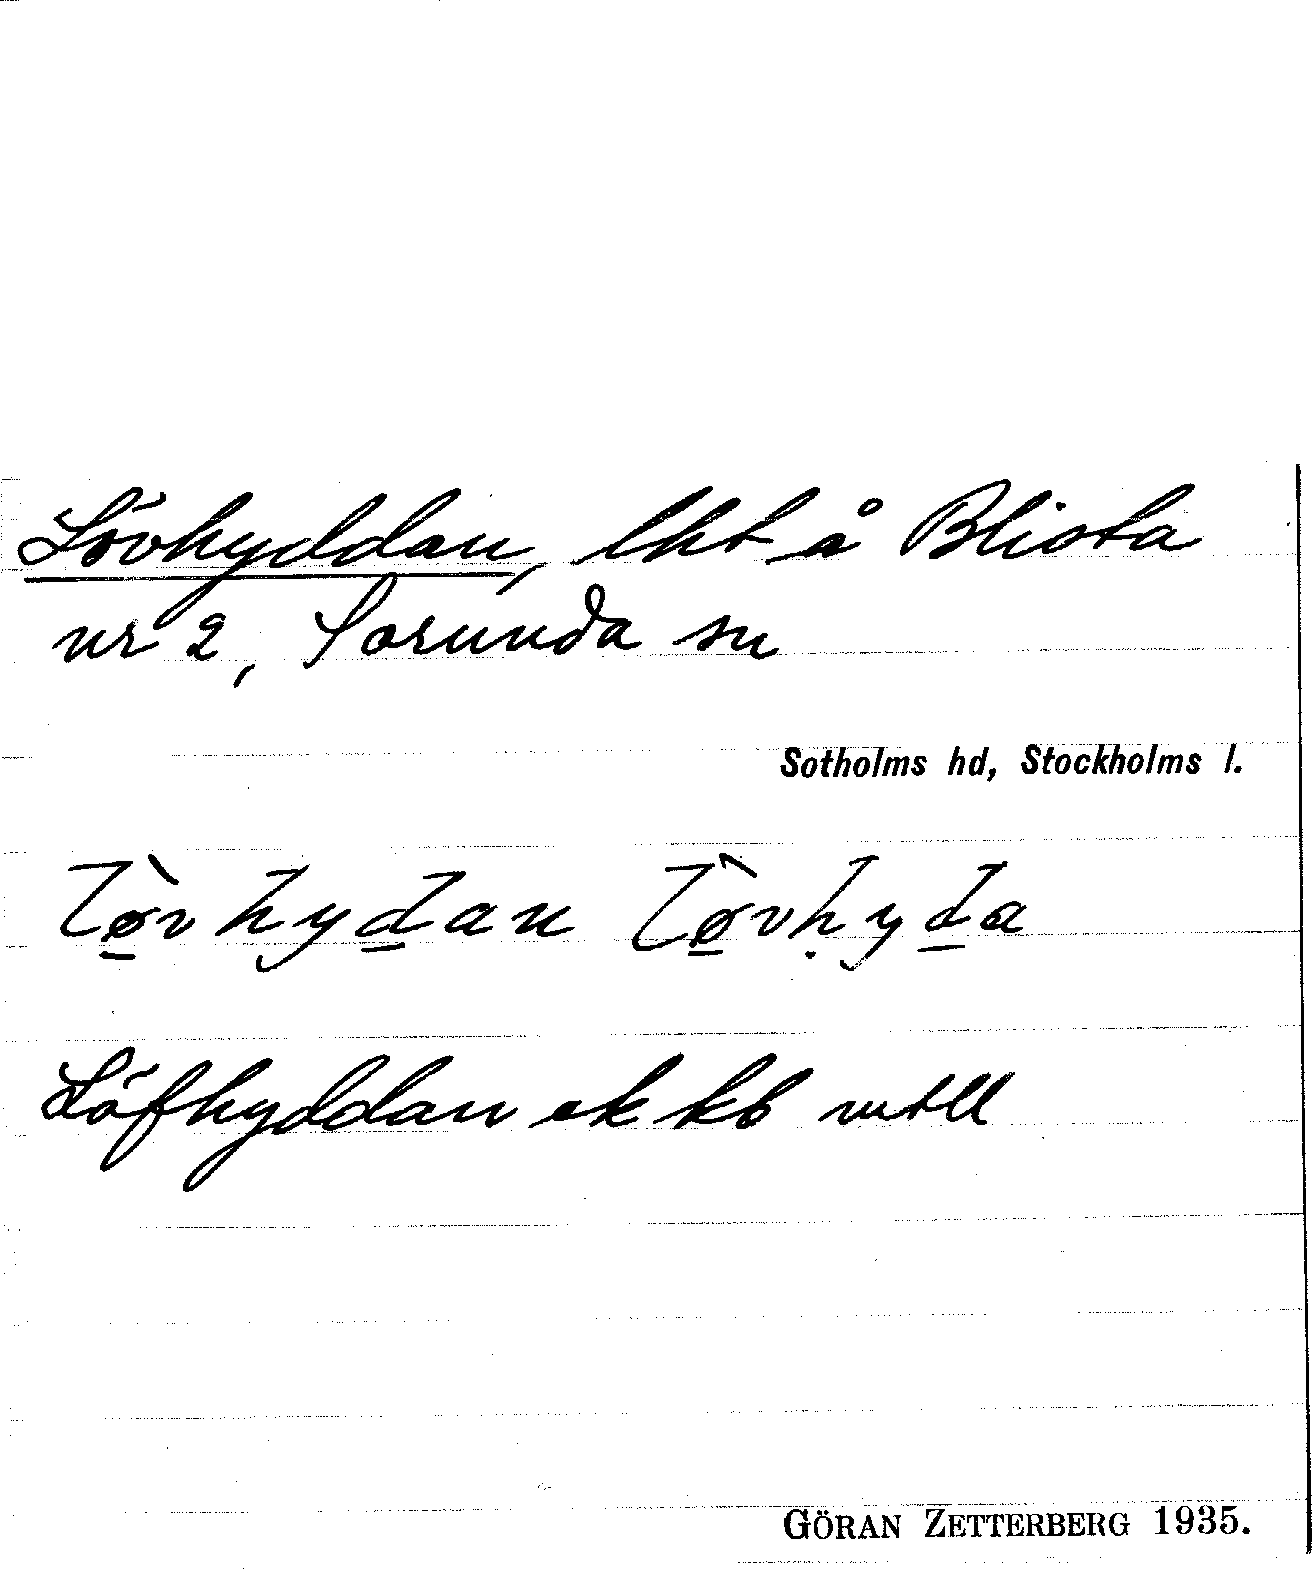 Lövhyddan, lht å Blista
nr 2, Sorunda sn
Sotholms hd, Stockholms l.
lø̱̀vhyḏan lø̱̀vḥyḏa
Löfhyddan ek kb
GÖRAN ZETTERBERG 1935.